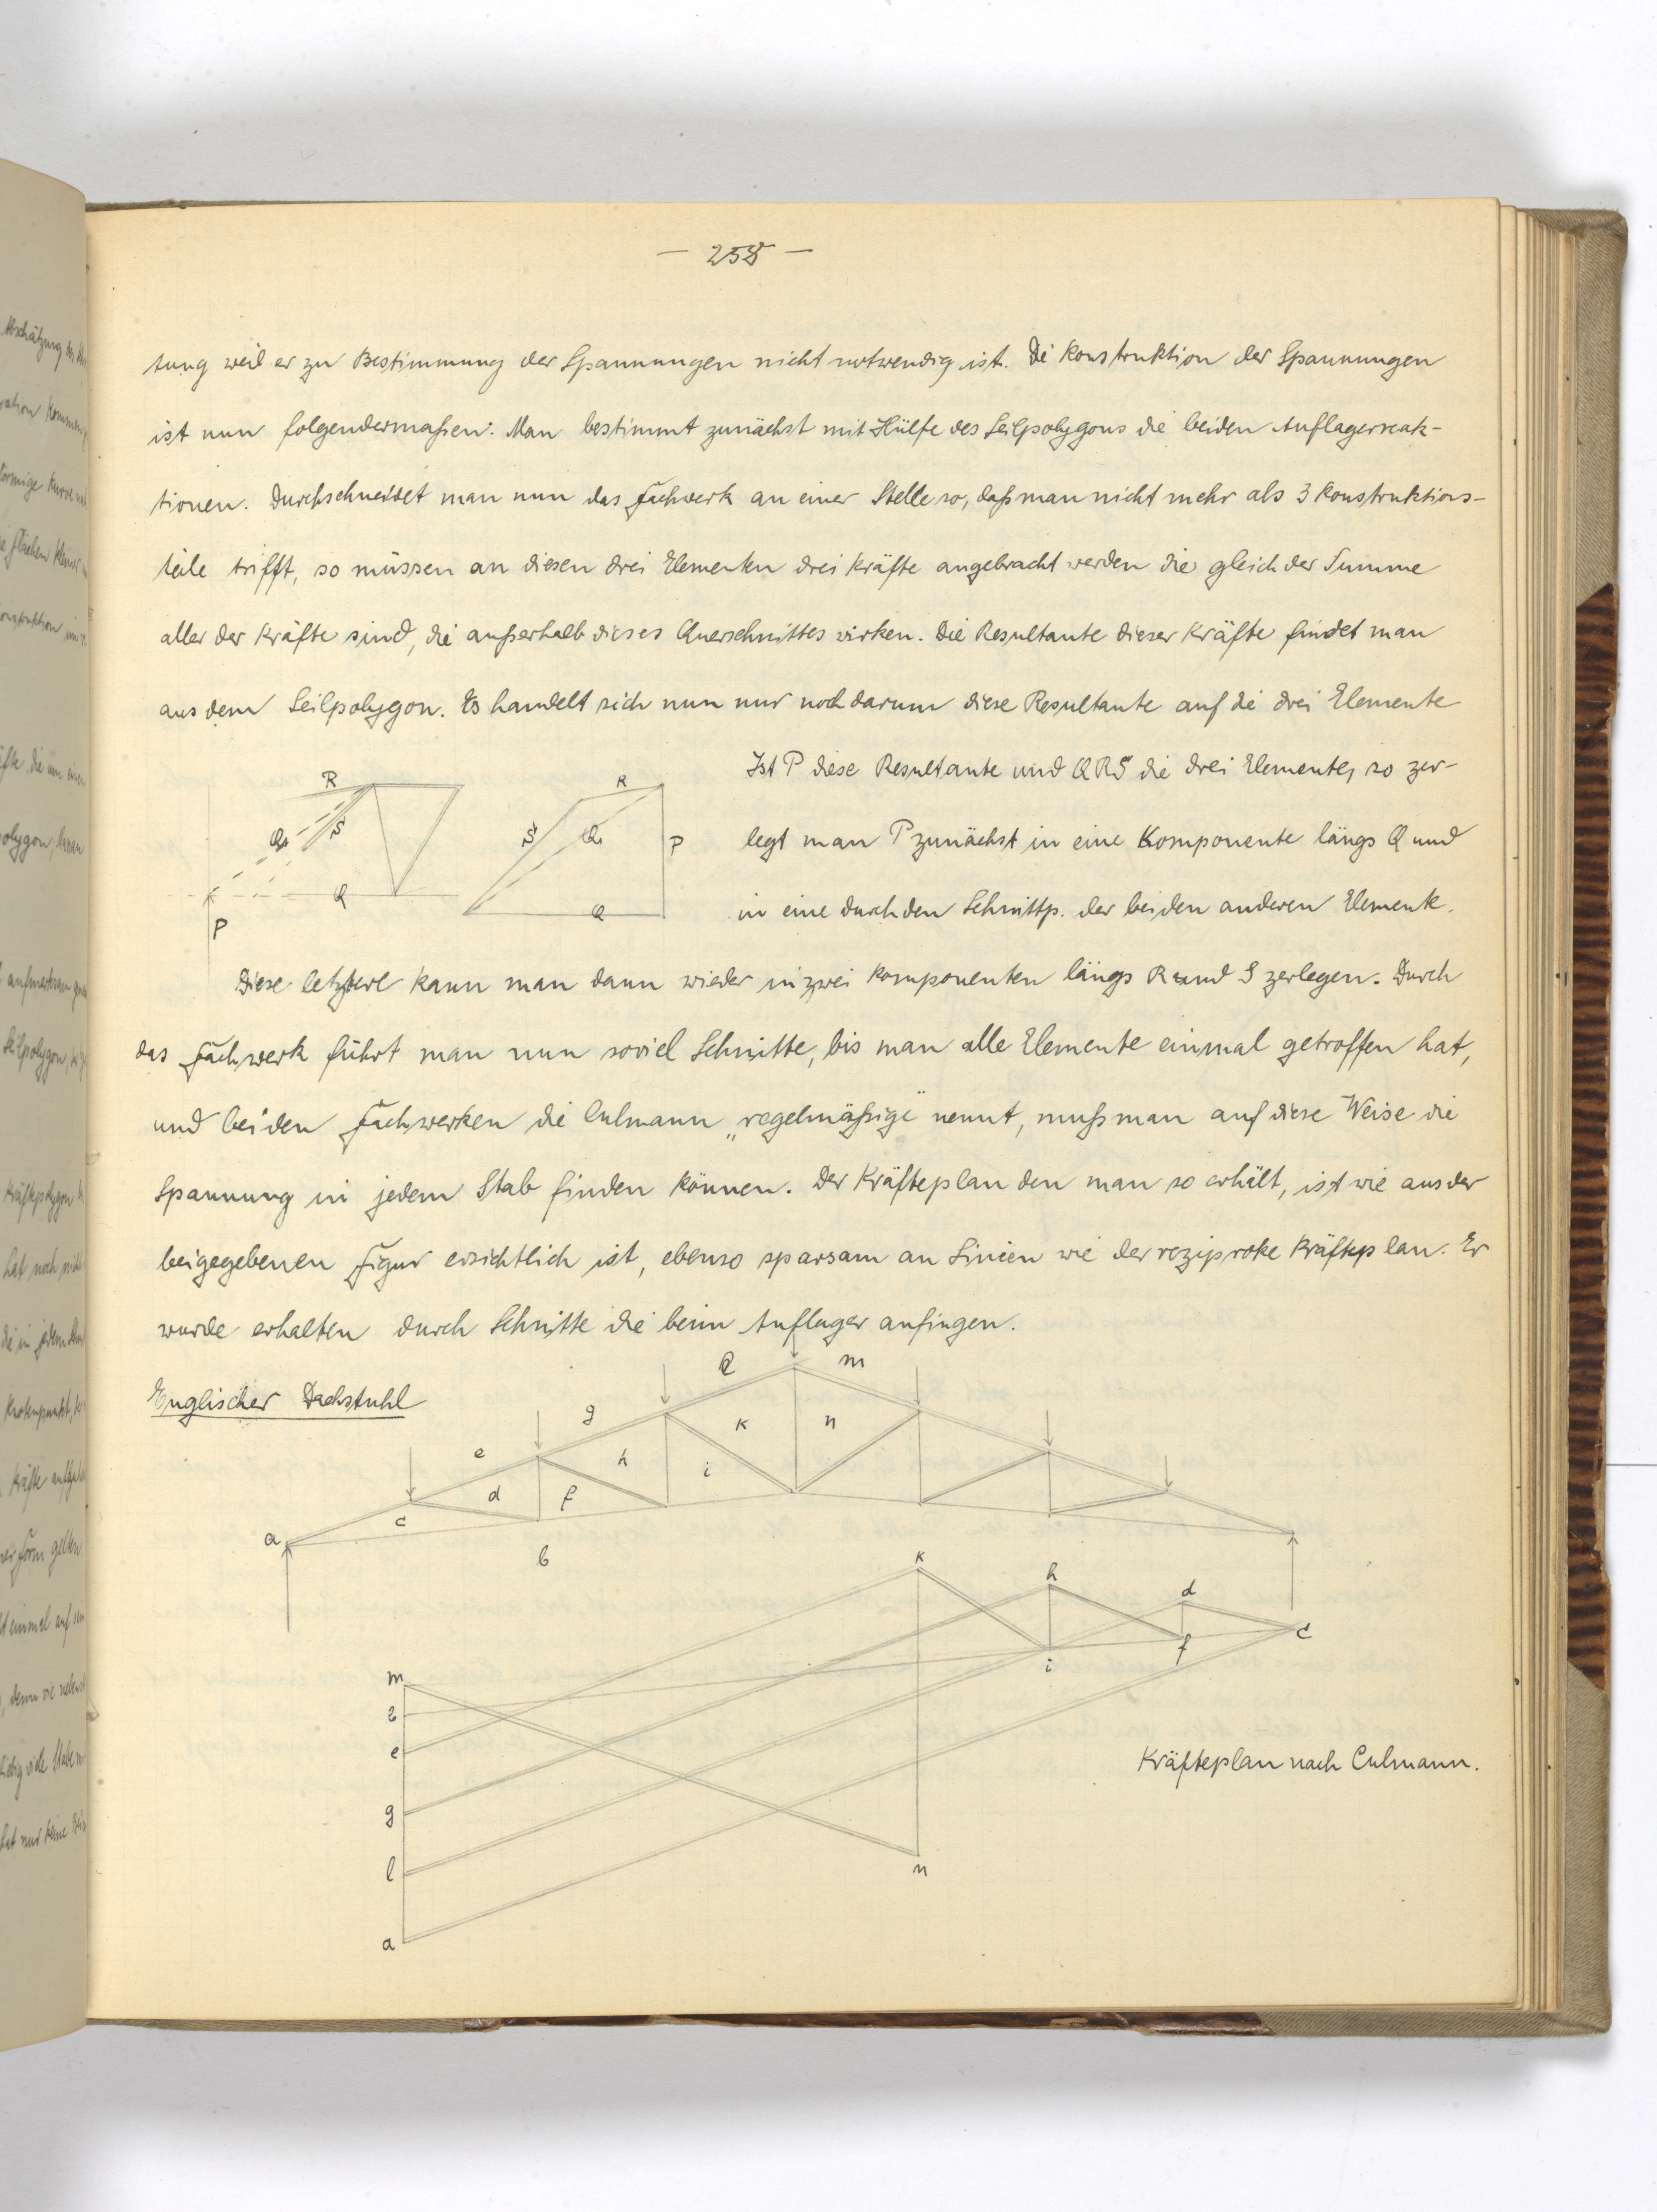 — 258 —
tung weil er zu Bestimmung der Spannungen nicht notwendig ist. Di Konstruktion der Spannungen
ist nun folgendermaßen: Man bestimmt zunächst mit Hülfe des Seilpolygons die beiden Auflagerreak-
tionen. Durchschneidet man nun das Fachwerk an einer Stelle so, daß man nicht mehr als 3 Konstruktions-
teile trifft, so müssen an diesen drei Elementen drei Kräfte angebracht werden die gleich der Summe
aller der Kräfte sind, die außerhalb dieses Querschnittes wirken. Die Resultante dieser Kräfte findet man
aus dem Seilpolygon. Es handelt sich nun nur noch darum diese Resultante auf die drei Elemente
Ist P diese Resultante und QRS die drei Elemente, so zer-
legt man P zunächst in eine Komponente längs Q und
in eine durch den Schnittp. der beiden anderen Elemente.
R
S
Q1
Q
P
R
S
Q1
P
Q
Diese letztere kann man dann wieder in zwei Komponenten längs R und S zerlegen. Durch
das Fachwerk führt man nun soviel Schnitte, bis man alle Elemente einmal getroffen hat,
und bei den Fachwerken die Culmann „regelmäßige" nennt, muß man auf diese Weise die
Spannung in jedem Stab finden können. Der Kräfteplan den man so erhält, ist wie aus der
beigegebenen Figur ersichtlich ist, ebenso sparsam an Linien wie der reziproke Kräfteplan. Er
wurde erhalten durch Schnitte die beim Auflager anfingen.
Englischer Dachstuhl
l m
g
e
k n
h
i
d f
c
a
b
k
h
d
f
c
i
m
b
e
g
l
a
n
Kräfteplan nach Culmann.